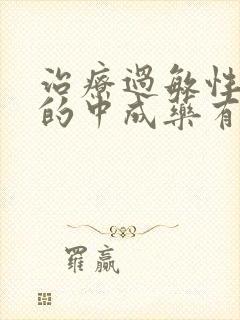 治療過敏性
的中成藥有
羅贏